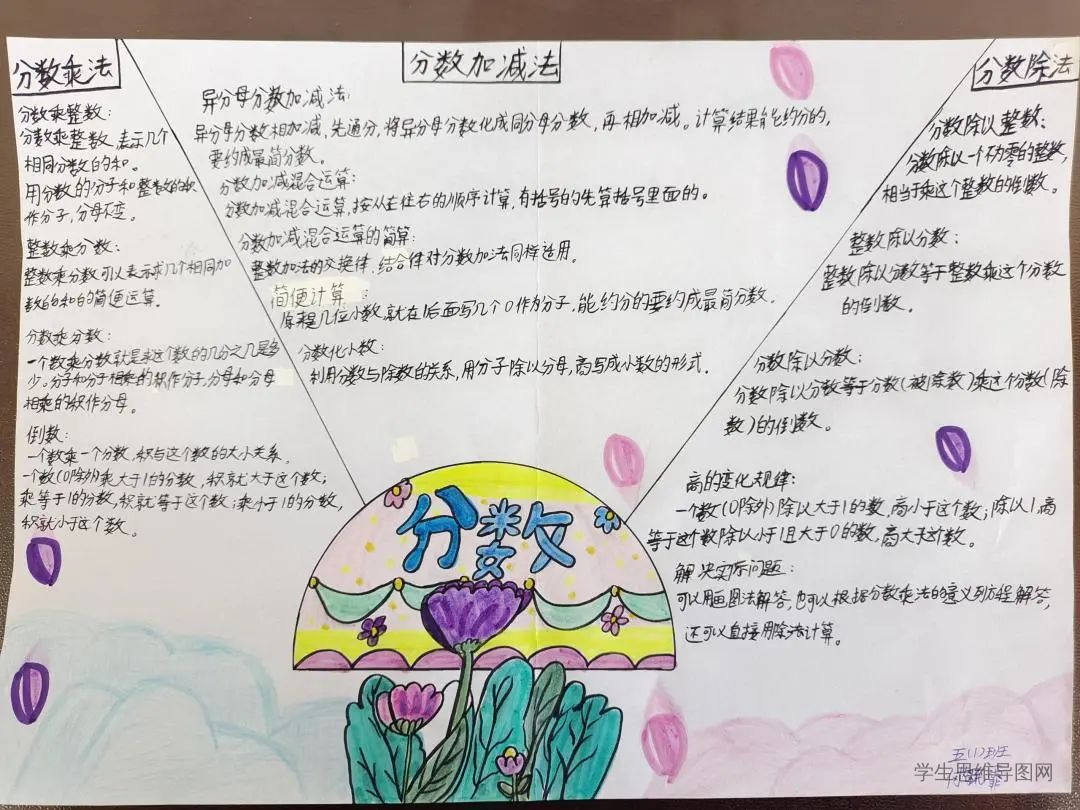 分数乘法
分数乘整数:
分数乘整数,表示几个
相同分数的和。
用分数的分子和整数的积
作分子,分母不变。
整数乘分数:
整数乘分数可以表示求几个相同加
数的和的简便运算。
分数乘分数:
一个数乘分数就是求这个数的几分之几是多
少。分子和分子相乘的积作分子,分母和分母
相乘的积作分母。
倒数:
一个数乘一个分数,积与这个数的大小关系。
一个数(0除外)乘大于1的分数,积就大于这个数;
乘等于1的分数,积就等于这个数;乘小于1的分数,
积就小于这个数。
分数加减法
异分母分数加减法:
异分母分数相加减,先通分,将异分母分数化成同分母分数,再相加减。计算结果能约分的,
要约成最简分数。
分数加减混合运算:
分数加减混合运算,按从左往右的顺序计算,有括号的先算括号里面的。
分数加减混合运算的简算:
整数加法的交换律,结合律对分数加法同样适用。
简便计算:
原来是几位小数,就在1后面写几个0作为分子,能约分的要约成最简分数。
分数化小数:
利用分数与除数的关系,用分子除以分母,商写成小数的形式.
分数除法
分数除以整数:
分数除以一个不为零的整数,
相当于乘这个整数的倒数。
整数除以分数:
整数除以分数等于整数乘这个分数
的倒数。
分数除以分数:
分数除以分数等于分数(被除数)乘这个分数(除
数)的倒数。
商的变化规律:
一个数(0除外)除以大于1的数,商小于这个数;除以1,商
等于这个数除以小于1且大于0的数,商大于这个数。
解决实际问题:
可以用画图法解答,也可以根据分数乘法的意义列方程解答,
还可以直接用除法计算。
分数
五(1)班
学生思维导图网